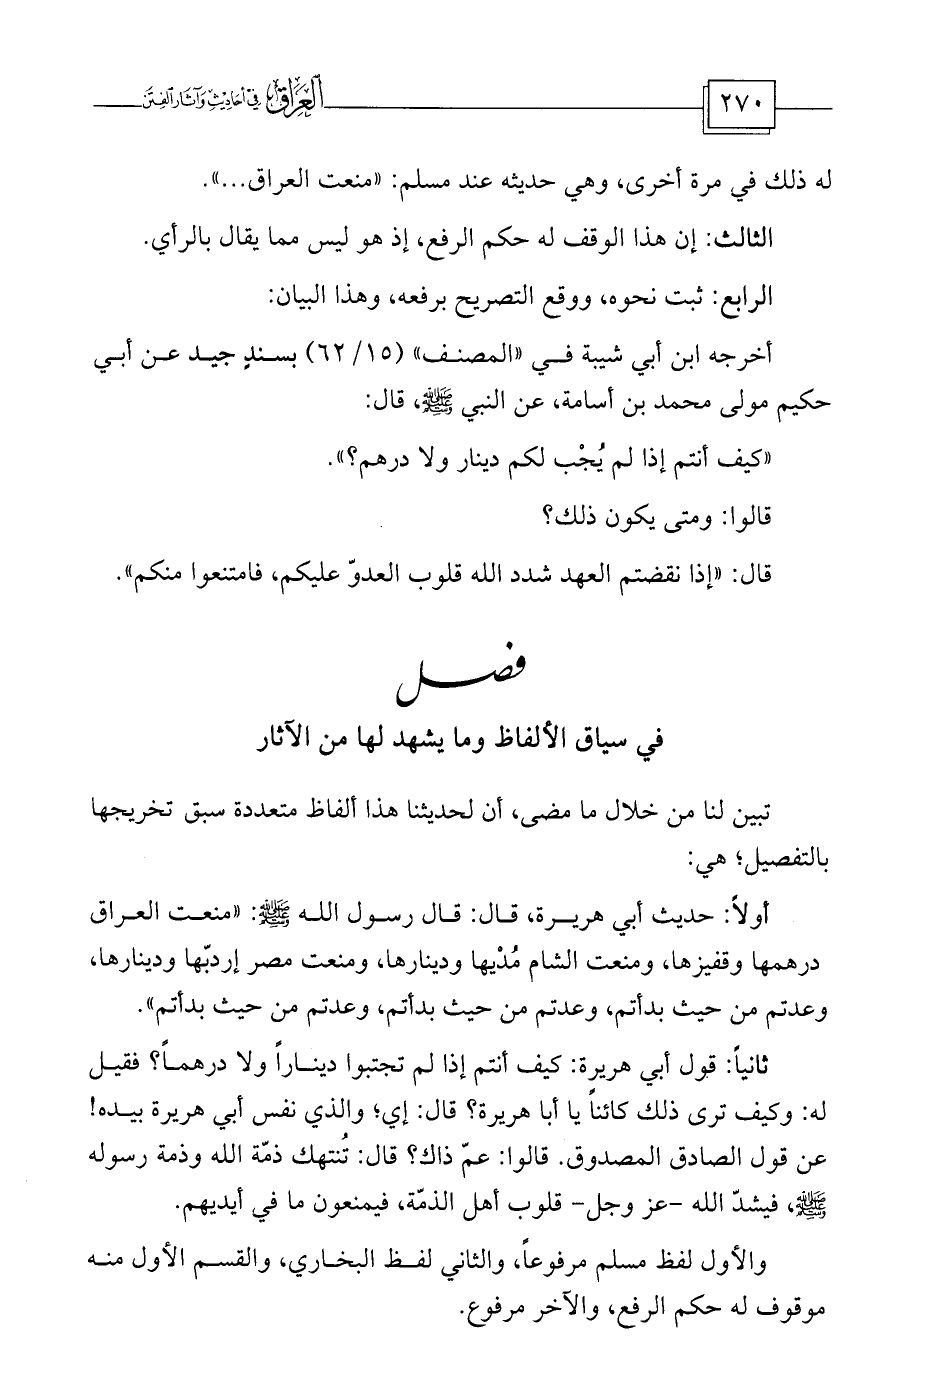 ٢٧٠
العراق في أحاديث وآثار الفتن
له ذلك في مرة أخرى، وهي حديثه عند مسلم: «منعت العراق...».
الثالث: إن هذا الوقف له حكم الرفع، إذ هو ليس مما يقال بالرأي.
الرابع: ثبت نحوه، ووقع التصريح برفعه، وهذا البيان:
أخرجه ابن أبي شيبة في «المصنف» (١٥/ ٦٢) بسندٍ جيد عن أبي
حكيم مولى محمد بن أسامة، عن النبي ﷺ، قال:
«كيف أنتم إذا لم يُجْب لكم دينار ولا درهم؟».
قالوا: ومتى يكون ذلك؟
قال: «إذا نقضتم العهد شدد الله قلوب العدوّ عليكم، فامتنعوا منكم».
فصل
في سياق الألفاظ وما يشهد لها من الآثار
تبين لنا من خلال ما مضى، أن لحديثنا هذا ألفاظ متعددة سبق تخريجها
بالتفصيل؛ هي:
أولاً: حديث أبي هريرة، قال: قال رسول الله ﷺ: «منعت العراق
درهمها وقفيزها، ومنعت الشام مُدْيها ودينارها، ومنعت مصر إردبّها ودينارها،
وعدتم من حيث بدأتم، وعدتم من حيث بدأتم، وعدتم من حيث بدأتم».
ثانياً: قول أبي هريرة: كيف أنتم إذا لم تجتبوا ديناراً ولا درهماً؟ فقيل
له: وكيف ترى ذلك كائناً يا أبا هريرة؟ قال: إي؛ والذي نفس أبي هريرة بيده!
عن قول الصادق المصدوق. قالوا: عمّ ذاك؟ قال: تُنتهك ذمّة الله وذمة رسوله
ﷺ، فيشدّ الله -عز وجل- قلوب أهل الذمّة، فيمنعون ما في أيديهم.
والأول لفظ مسلم مرفوعاً، والثاني لفظ البخاري، والقسم الأول منه
موقوف له حكم الرفع، والآخر مرفوع.